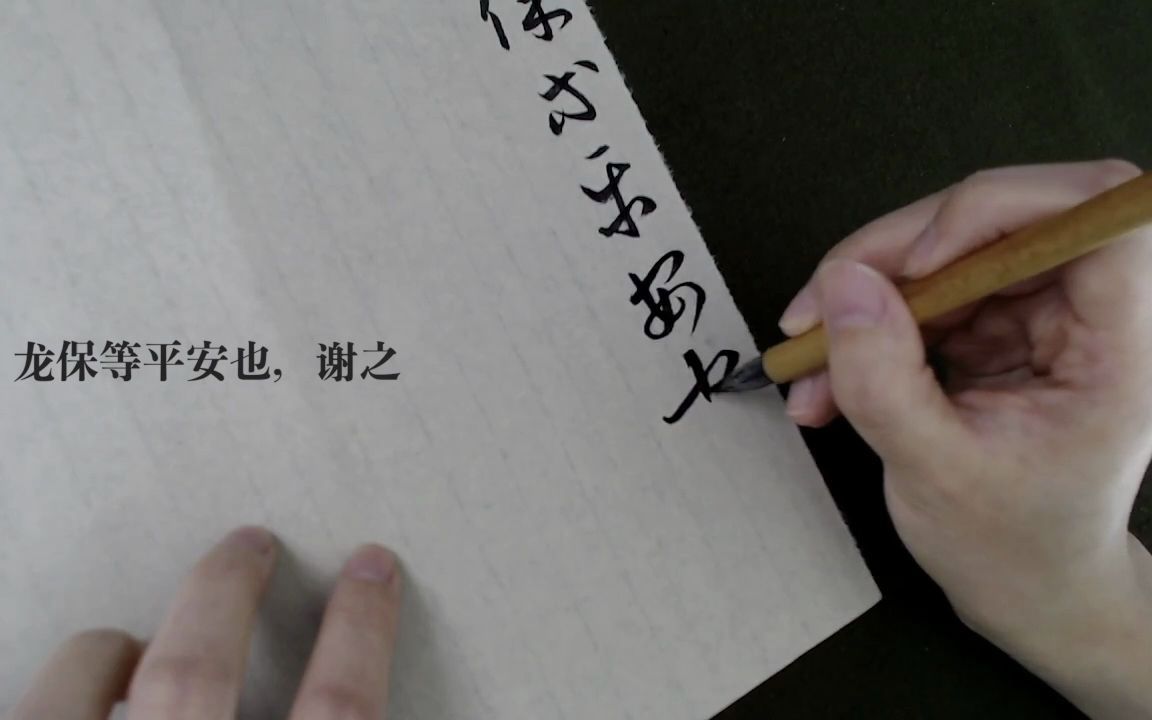 保等平安也
龙保等平安也，谢之